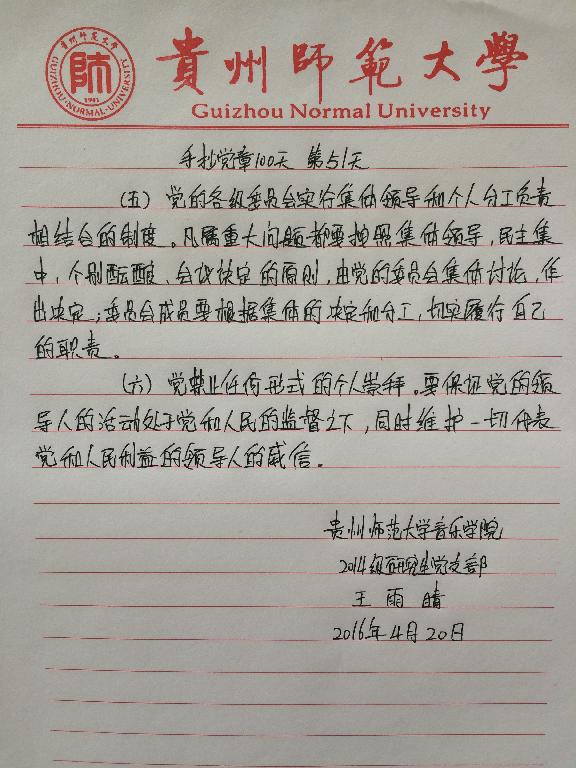 貴州師範大學
Guizhou Normal University
貴州師范大学
師
1941
GUIZHOU·NORMAL·UNIVERSITY
手抄党章100天 第51天
(五) 党的各级委员会实行集体领导和个人分工负责
相结合的制度。凡属重大问题都要按照集体领导,民主集
中,个别酝酿、会议决定的原则,由党的委员会集体讨论,作
出决定;委员会成员要根据集体的决定和分工,切实履行自己
的职责。
(六) 党禁止任何形式的个人崇拜。要保证党的领
导人的活动处于党和人民的监督之下,同时维护一切代表
党和人民利益的领导人的威信。
贵州师范大学音乐学院
2014级研究生党支部
王雨晴
2016年4月20日